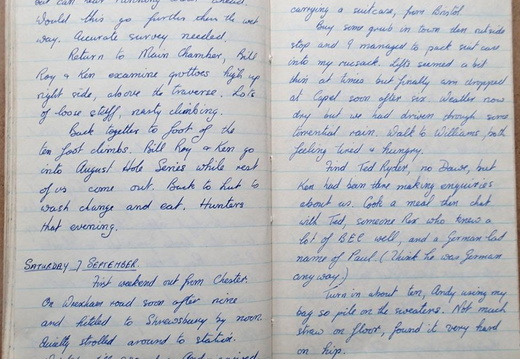 Would this go further when the wet
way. Accurate survey needed.
Return to Main Chamber, Bill
Roy & Ken examine grottoes high up
right side, above the traverse. Lots
of loose stuff, nasty climbing.
Back together to foot of the
ten foot climbs. Bill Roy & Ken go
into August Hole Series while rest
of us come out. Back to hut to
wash change and eat. Hunters
that evening.
SATURDAY 7 SEPTEMBER
First weekend out from Chester.
On Wrexham road soon after nine
and hitched to Shrewsbury by noon.
Quickly strolled around to station.
carrying a suitcase, from Bristol.
Buy some grub in town then outside
stop and I managed to pack suitcase
into my rucsack. Lifts seemed a bit
thin at times but finally am dropped
at Capel soon after six. Weather now
dry but we had driven through some
torrential rain. Walk to Williams, both
feeling tired & hungry.
Find Ted Ryder, no Dave, but
Ken had been there making enquiries
about us. Cook a meal then chat
with Ted, someone Rex who knew a
lot of BEC well, and a German lad
name of Paul (Think he was German
anyway.)
Turn in about ten, Andy using my
bag so pile on the sweaters. Not much
straw on floor, found it very hard
on hip.